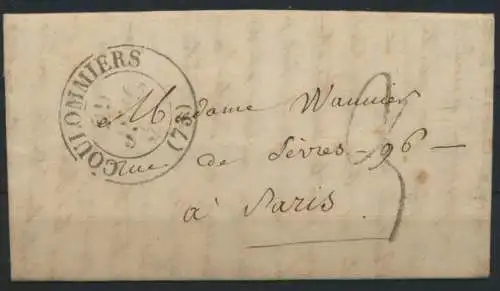 COULOMMIERS (73)
à Madame Wannier
Rue de Sèvres - 96 -
à Paris
3